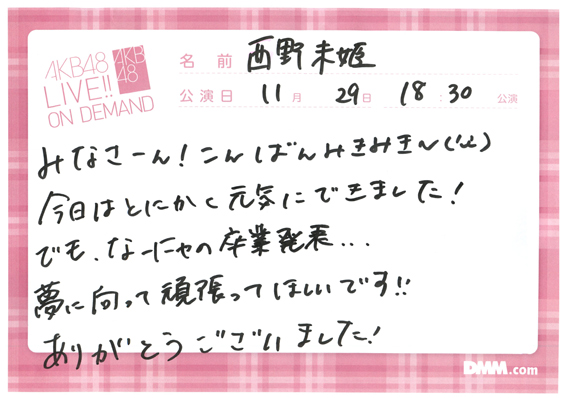 AKB48
LIVE!!
ON DEMAND
AKB
48
名前 西野未姫
公演日 11月 29日 18:30 公演
みなさーん!こんばんみきみき~('ω')
今日はとにかく元気にできました!
でも、なーにゃの卒業発表...
夢に向って頑張ってほしいです!!
ありがとうございました!
DMM.com